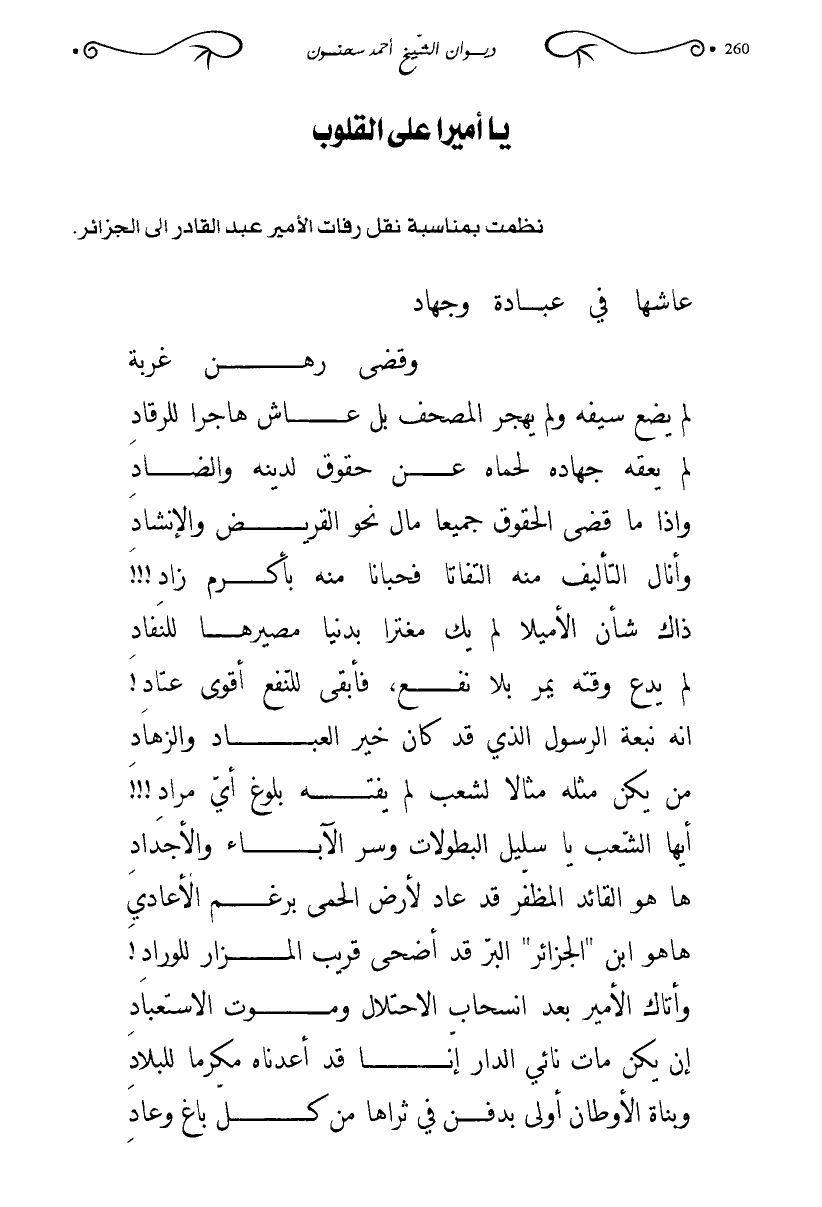 260 ديوان الشّيخ أحمد سحنون
يا أميرا على القلوب
نظمت بمناسبة نقل رفات الأمير عبد القادر الى الجزائر.
عاشها في عبادة وجهاد
وقضى رهن غربة
لم يضع سيفه ولم يهجر المصحف بل عاش هاجرا للرقادِ
لم يعقه جهاده لحماه عن حقوق لدينه والضادِ
واذا ما قضى الحقوق جميعا مال نحو القريض والإنشادِ
وأنال التأليف منه التفاتا فحبانا منه بأكرم زادِ!!!
ذاك شأن الأميلا لم يك مغترا بدنيا مصيرها للنفادِ
لم يدع وقته يمر بلا نفع، فأبقى للنّفع أقوى عتادِ!
انه نبعة الرسول الذي قد كان خير العباد والزهادِ
من يكن مثله مثالا لشعب لم يفته بلوغ أيّ مرادِ!!!
أيها الشّعب يا سليل البطولات وسر الآباء والأجدادِ
ها هو القائد المظفّر قد عاد لأرض الحمى برغم الأعادي
هاهو ابن "الجزائر" البرّ قد أضحى قريب المزار للورادِ!
وأتاك الأمير بعد انسحاب الاحتلال وموت الاستعبادِ
إن يكن مات نائي الدار إنّا قد أعدناه مكرما للبلادِ
وبناة الأوطان أولى بدفن في ثراها من كلّ باغ وعادِ